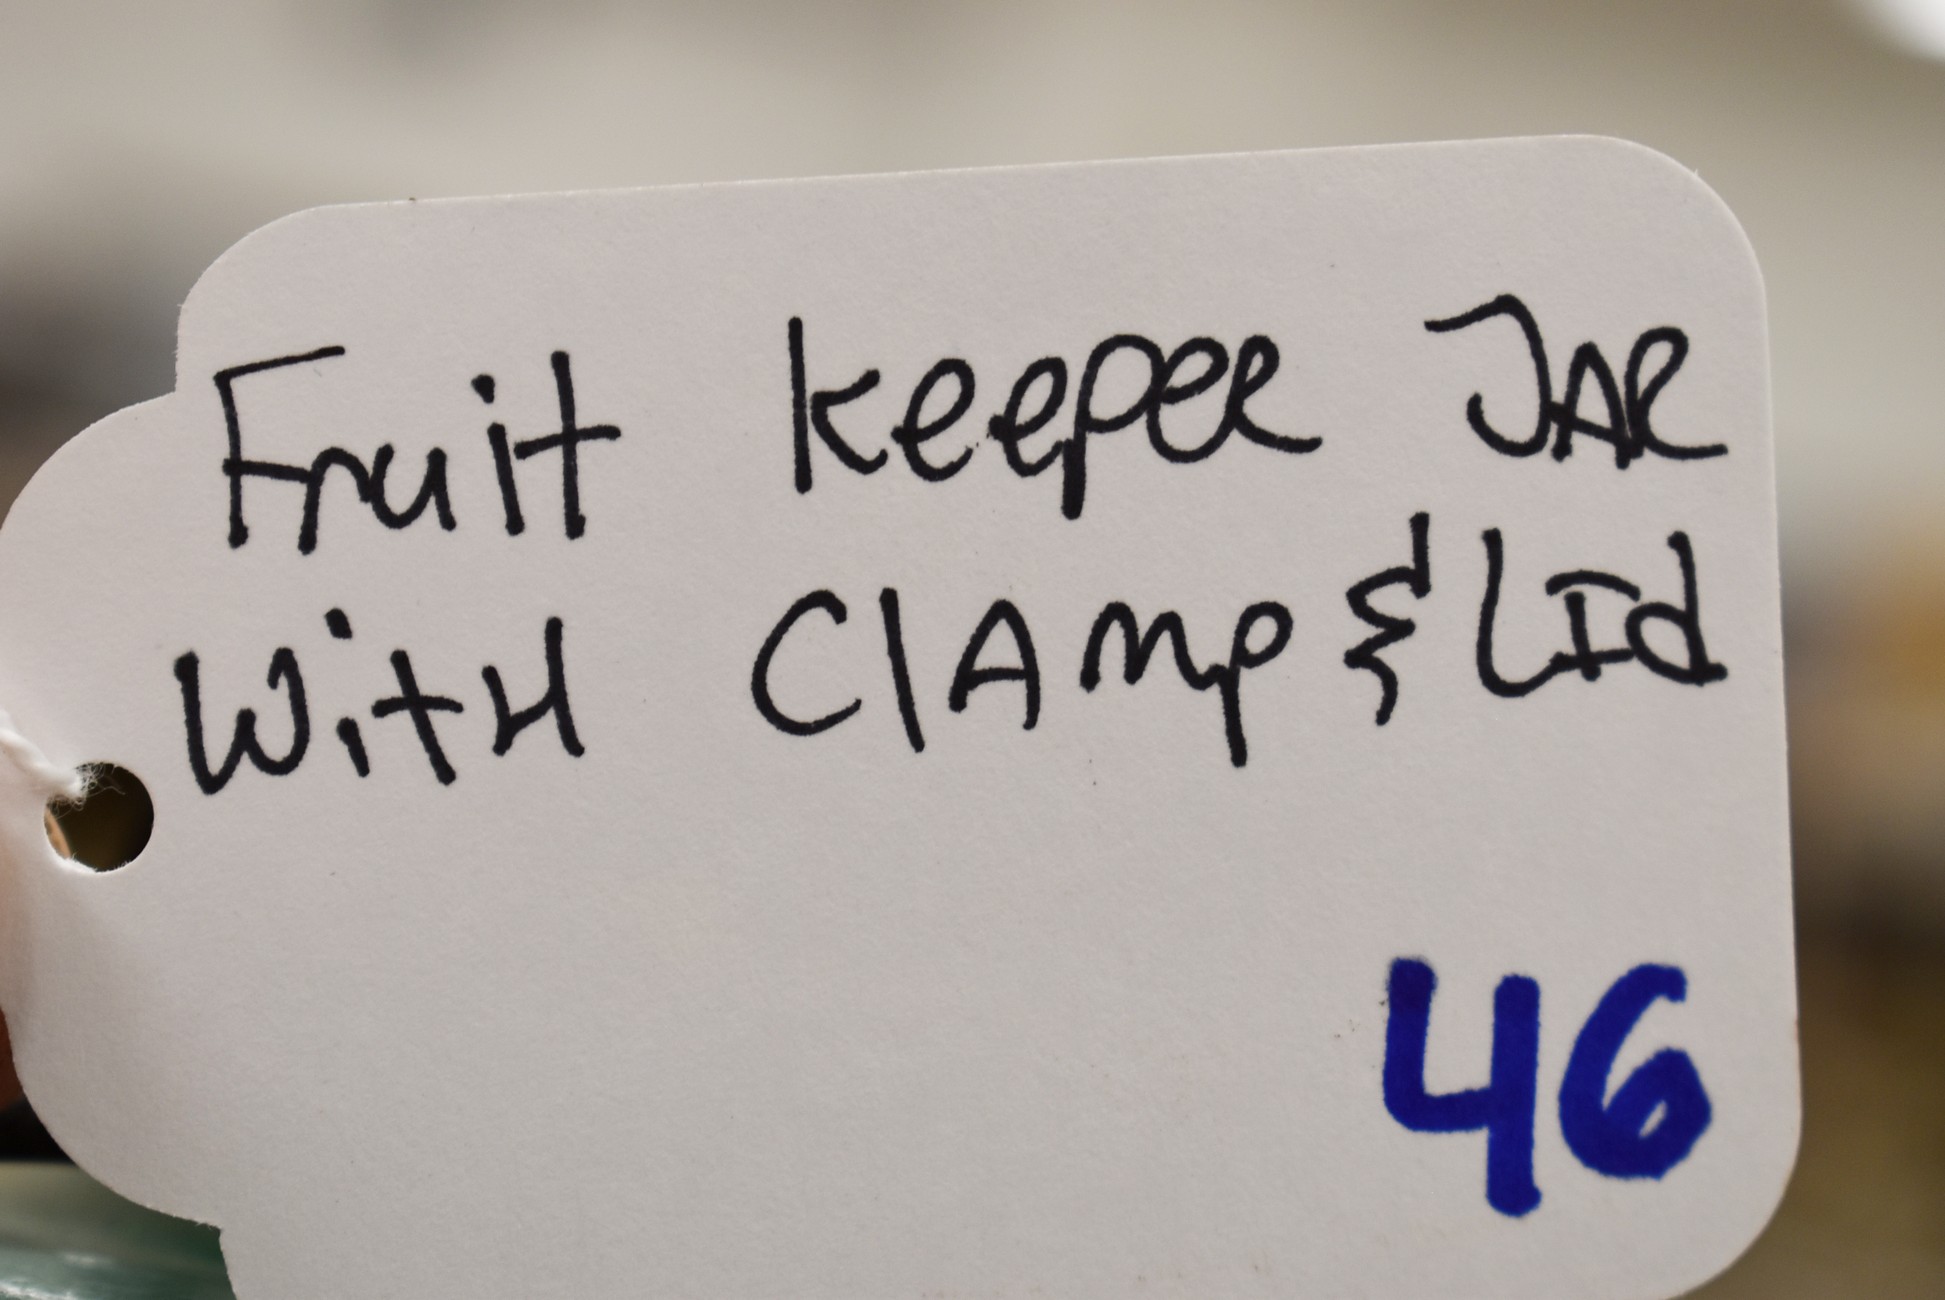 Fruit Keeper JAR
With ClAmp & LId
46